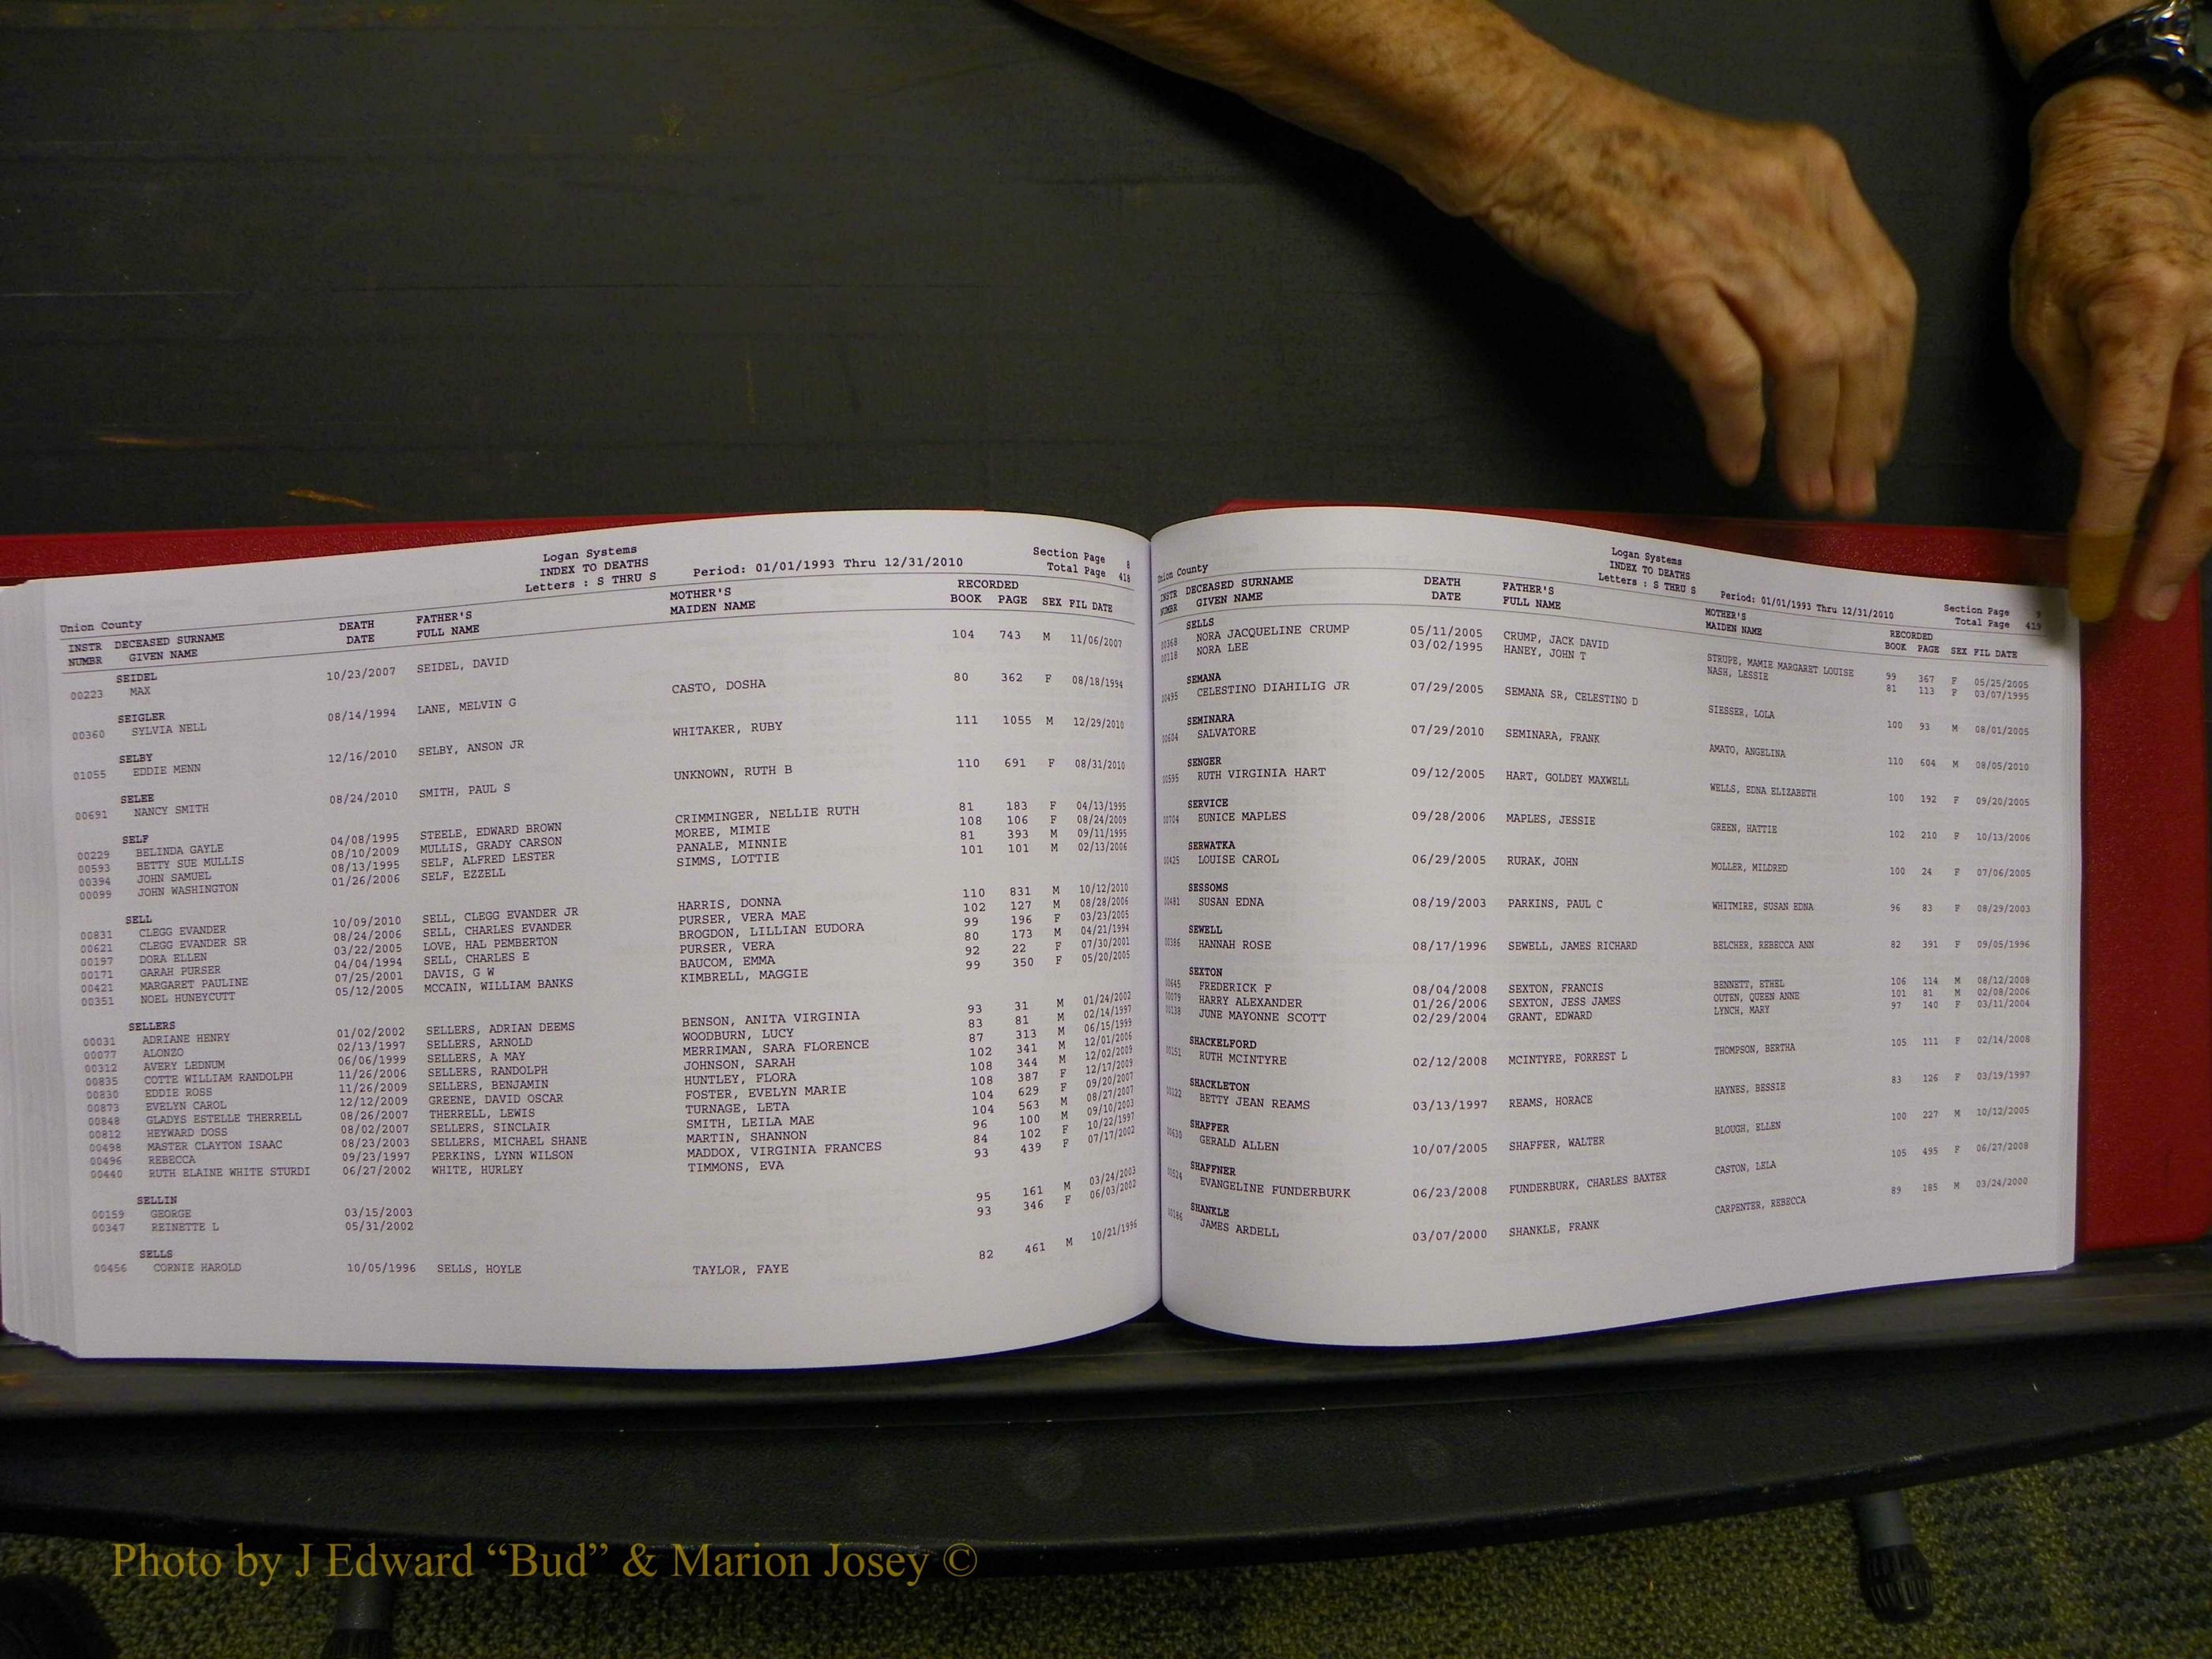 Logan Systems
INDEX TO DEATHS
Letters : S THRU S Period: 01/01/1993 Thru 12/31/2010
Section Page 8
Total Page 418
Union County
INSTR DECEASED SURNAME DEATH FATHER'S MOTHER'S RECORDED
NUMBR GIVEN NAME DATE FULL NAME MAIDEN NAME BOOK PAGE SEX FIL DATE
SEIDEL
00223 MAX 10/23/2007 SEIDEL, DAVID 104 743 M 11/06/2007
SEIGLER
00360 SYLVIA NELL 08/14/1994 LANE, MELVIN G CASTO, DOSHA 80 362 F 08/18/1994
SELBY
01055 EDDIE MENN 12/16/2010 SELBY, ANSON JR WHITAKER, RUBY 111 1055 M 12/29/2010
SELEE
00691 NANCY SMITH 08/24/2010 SMITH, PAUL S UNKNOWN, RUTH B 110 691 F 08/31/2010
SELF
00229 BELINDA GAYLE 04/08/1995 STEELE, EDWARD BROWN CRIMMINGER, NELLIE RUTH 81 183 F 04/13/1995
00593 BETTY SUE MULLIS 08/10/2009 MULLIS, GRADY CARSON MOREE, MIMIE 108 106 F 08/24/2009
00394 JOHN SAMUEL 08/13/1995 SELF, ALFRED LESTER PANALE, MINNIE 81 393 M 09/11/1995
00099 JOHN WASHINGTON 01/26/2006 SELF, EZZELL SIMMS, LOTTIE 101 101 M 02/13/2006
SELL
00831 CLEGG EVANDER 10/09/2010 SELL, CLEGG EVANDER JR HARRIS, DONNA 110 831 M 10/12/2010
00621 CLEGG EVANDER SR 08/24/2006 SELL, CHARLES EVANDER PURSER, VERA MAE 102 127 M 08/28/2006
00197 DORA ELLEN 03/22/2005 LOVE, HAL PEMBERTON BROGDON, LILLIAN EUDORA 99 196 F 03/23/2005
00171 GARAH PURSER 04/04/1994 SELL, CHARLES E PURSER, VERA 80 173 M 04/21/1994
00421 MARGARET PAULINE 07/25/2001 DAVIS, G W BAUCOM, EMMA 92 22 F 07/30/2001
00351 NOEL HUNEYCUTT 05/12/2005 MCCAIN, WILLIAM BANKS KIMBRELL, MAGGIE 99 350 F 05/20/2005
SELLERS
00031 ADRIANE HENRY 01/02/2002 SELLERS, ADRIAN DEEMS BENSON, ANITA VIRGINIA 93 31 M 01/24/2002
00077 ALONZO 02/13/1997 SELLERS, ARNOLD WOODBURN, LUCY 83 81 M 02/14/1997
00312 AVERY LEDNUM 06/06/1999 SELLERS, A MAY MERRIMAN, SARA FLORENCE 87 313 M 06/15/1999
00835 COTTE WILLIAM RANDOLPH 11/26/2006 SELLERS, RANDOLPH JOHNSON, SARAH 102 341 M 12/01/2006
00830 EDDIE ROSS 11/26/2009 SELLERS, BENJAMIN HUNTLEY, FLORA 108 344 M 12/02/2009
00873 EVELYN CAROL 12/12/2009 GREENE, DAVID OSCAR FOSTER, EVELYN MARIE 108 387 F 12/17/2009
00848 GLADYS ESTELLE THERRELL 08/26/2007 THERRELL, LEWIS TURNAGE, LETA 104 629 F 09/20/2007
00812 HEYWARD DOSS 08/02/2007 SELLERS, SINCLAIR SMITH, LEILA MAE 104 563 M 08/27/2007
00498 MASTER CLAYTON ISAAC 08/23/2003 SELLERS, MICHAEL SHANE MARTIN, SHANNON 96 100 M 09/10/2003
00496 REBECCA 09/23/1997 PERKINS, LYNN WILSON MADDOX, VIRGINIA FRANCES 84 102 F 10/22/1997
00440 RUTH ELAINE WHITE STURDI 06/27/2002 WHITE, HURLEY TIMMONS, EVA 93 439 F 07/17/2002
SELLIN
00159 GEORGE 03/15/2003 95 161 M 03/24/2003
00347 REINETTE L 05/31/2002 93 346 F 06/03/2002
SELLS
00456 CORNIE HAROLD 10/05/1996 SELLS, HOYLE TAYLOR, FAYE 82 461 M 10/21/1996
Logan Systems
INDEX TO DEATHS
Letters : S THRU S Period: 01/01/1993 Thru 12/31/2010
Section Page 9
Total Page 419
Union County
INSTR DECEASED SURNAME DEATH FATHER'S MOTHER'S RECORDED
NUMBR GIVEN NAME DATE FULL NAME MAIDEN NAME BOOK PAGE SEX FIL DATE
SELLS
00368 NORA JACQUELINE CRUMP 05/11/2005 CRUMP, JACK DAVID STRUPE, MAMIE MARGARET LOUISE 99 367 F 05/25/2005
00118 NORA LEE 03/02/1995 HANEY, JOHN T NASH, LESSIE 81 113 F 03/07/1995
SEMANA
00495 CELESTINO DIAHILIG JR 07/29/2005 SEMANA SR, CELESTINO D SIESSER, LOLA 100 93 M 08/01/2005
SEMINARA
00604 SALVATORE 07/29/2010 SEMINARA, FRANK AMATO, ANGELINA 110 604 M 08/05/2010
SENGER
00595 RUTH VIRGINIA HART 09/12/2005 HART, GOLDEY MAXWELL WELLS, EDNA ELIZABETH 100 192 F 09/20/2005
SERVICE
00704 EUNICE MAPLES 09/28/2006 MAPLES, JESSIE GREEN, HATTIE 102 210 F 10/13/2006
SERWATKA
00425 LOUISE CAROL 06/29/2005 RURAK, JOHN MOLLER, MILDRED 100 24 F 07/06/2005
SESSOMS
00481 SUSAN EDNA 08/19/2003 PARKINS, PAUL C WHITMIRE, SUSAN EDNA 96 83 F 08/29/2003
SEWELL
00386 HANNAH ROSE 08/17/1996 SEWELL, JAMES RICHARD BELCHER, REBECCA ANN 82 391 F 09/05/1996
SEXTON
00645 FREDERICK F 08/04/2008 SEXTON, FRANCIS BENNETT, ETHEL 106 114 M 08/12/2008
00079 HARRY ALEXANDER 01/26/2006 SEXTON, JESS JAMES OUTEN, QUEEN ANNE 101 81 M 02/08/2006
00138 JUNE MAYONNE SCOTT 02/29/2004 GRANT, EDWARD LYNCH, MARY 97 140 F 03/11/2004
SHACKELFORD
00151 RUTH MCINTYRE 02/12/2008 MCINTYRE, FORREST L THOMPSON, BERTHA 105 111 F 02/14/2008
SHACKLETON
00122 BETTY JEAN REAMS 03/13/1997 REAMS, HORACE HAYNES, BESSIE 83 126 F 03/19/1997
SHAFFER
00630 GERALD ALLEN 10/07/2005 SHAFFER, WALTER BLOUGH, ELLEN 100 227 M 10/12/2005
SHAFFNER
00524 EVANGELINE FUNDERBURK 06/23/2008 FUNDERBURK, CHARLES BAXTER CASTON, LELA 105 495 F 06/27/2008
SHANKLE
00186 JAMES ARDELL 03/07/2000 SHANKLE, FRANK CARPENTER, REBECCA 89 185 M 03/24/2000
Photo by J Edward “Bud” & Marion Josey ©